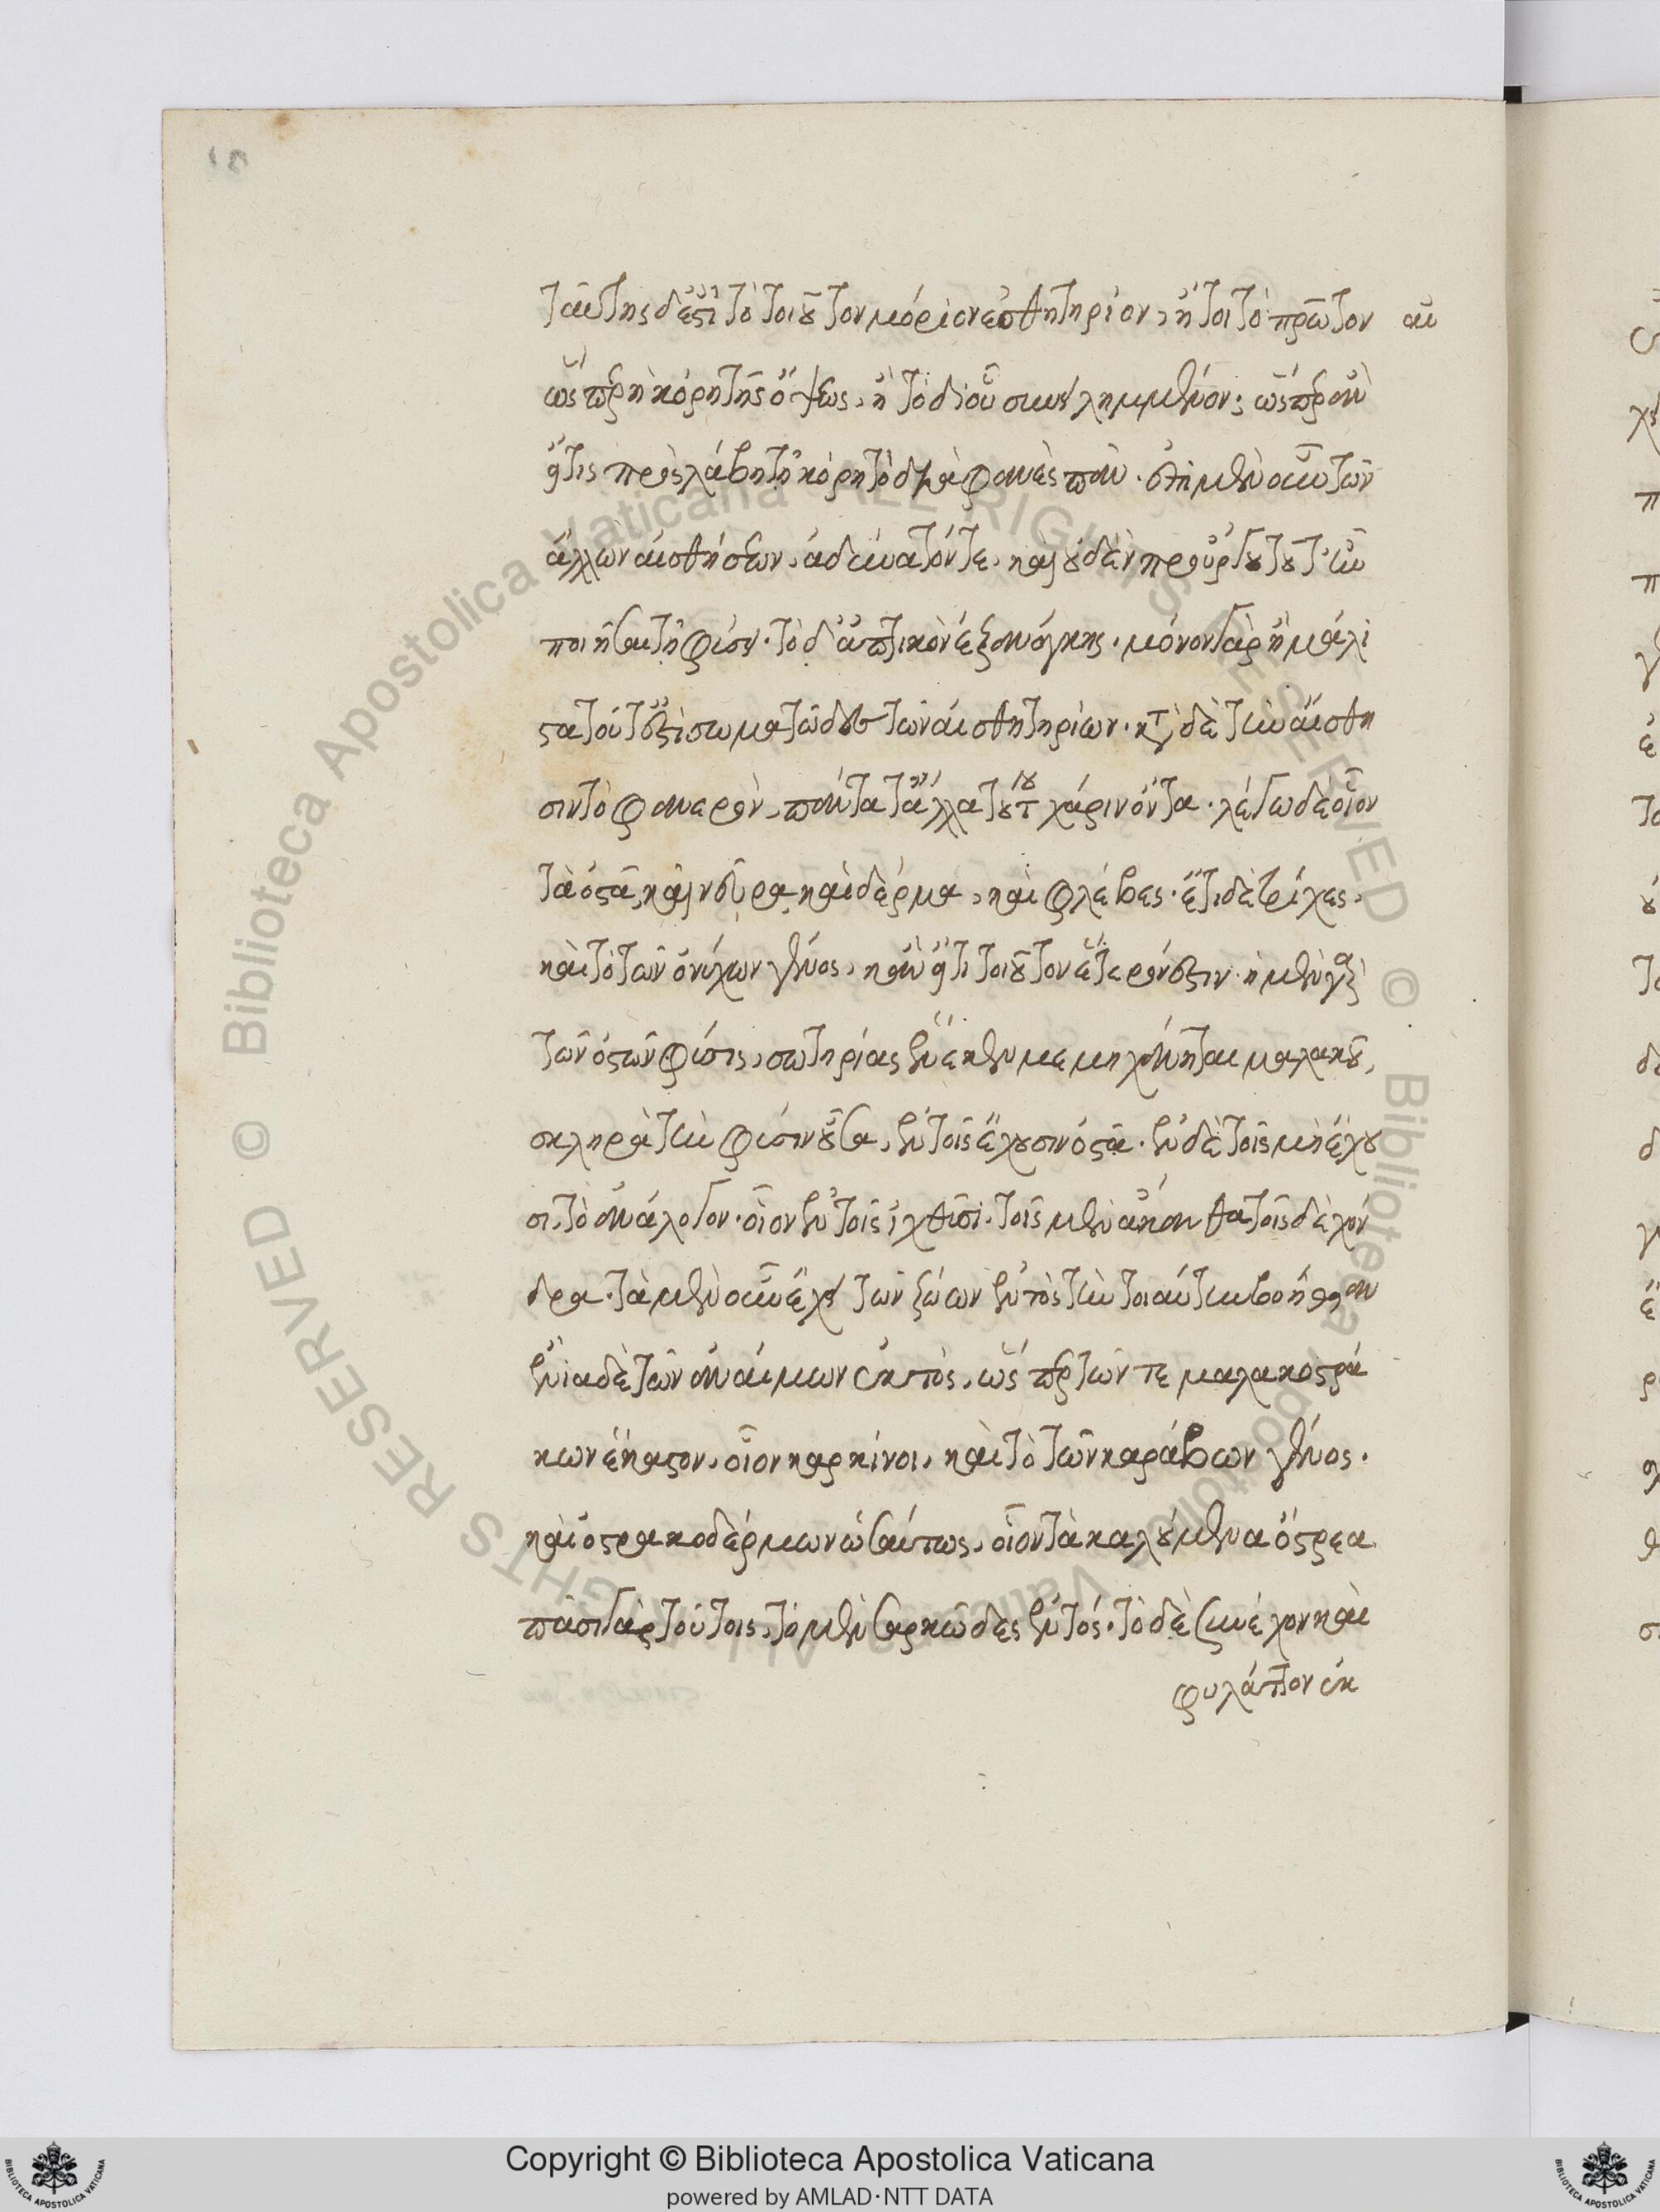 ταύτης δ' ἐστὶ τὸ τοιοῦτον μόριον αἰσθητήριον, ἤτοι τὸ πρῶτον αὖ
ὥσπερ ἡ κόρη τῆς ὄψεως, ἢ τὸ δι' οὗ συνειλημμένον· ὥσπερ ἂν
εἴ τις προσλάβῃ τῇ κόρῃ τὸ διαφανὲς πᾶν. ἐπὶ μὲν οὖν τῶν
ἄλλων αἰσθήσεων, ἀδύνατόν τε, καὶ οὐδὲν προὔργου τοῦτ' ἦν
ποιῆσαι τῇ φύσει. τὸ δ' ἁπτικὸν ἐξ ἀνάγκης. μόνον γὰρ ἢ μάλι
στα τοῦτ' ἐστὶ σωματῶδες τῶν αἰσθητηρίων. κατὰ δὲ τὴν αἴσθη
σιν τὸ φανερόν, πάντα τἄλλα τούτου χάριν ὄντα. λέγω δὲ οἷον
τὰ ὀστᾶ, καὶ νεῦρα καὶ δέρμα, καὶ φλέβες. ἔτι δὲ τρίχες,
καὶ τὸ τῶν ὀνύχων γένος, κἂν εἴ τι τοιοῦτον ἕτερόν ἐστιν. ἡ μὲν γὰρ
τῶν ὀστῶν φύσις, σωτηρίας ἕνεκεν μεμηχάνηται μαλακοῦ,
σκληρὰ τὴν φύσιν οὖσα, ἐν τοῖς ἔχουσιν ὀστᾶ. ἐν δὲ τοῖς μὴ ἔχου
σι, τὸ ἀνάλογον. οἷον ἐν τοῖς ἰχθύσι. τοῖς μὲν ἄκανθα τοῖς δὲ χόν
δρα. τὰ μὲν οὖν ἔχει τῶν ζώων ἐντὸς τὴν τοιαύτην βοήθειαν
ἔνια δὲ τῶν ἀναίμων ἐκτός, ὥσπερ τῶν τε μαλακοστρά
κων ἕκαστον, οἷον καρκίνοι, καὶ τὸ τῶν καράβων γένος.
καὶ ὀστρακοδέρμων ὡσαύτως, οἷον τὰ καλούμενα ὄστρεα
πᾶσι γὰρ τούτοις, τὸ μὲν σαρκῶδες ἐντός. τὸ δὲ συνέχον καὶ
φυλάττον ἐκ